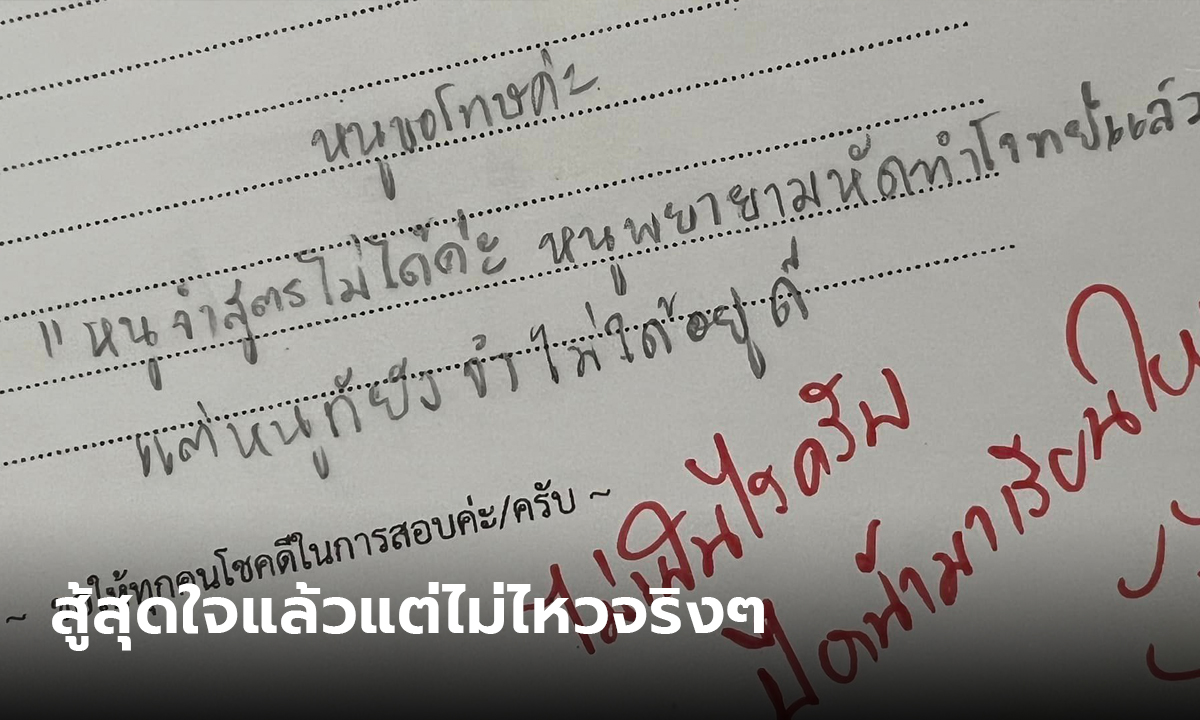 หนูขอโทษค่ะ
" หนูจำสูตรไม่ได้ค่ะ หนูพยายามหัดทำโจทย์แล้ว
แต่หนูก็ยังจำไม่ได้อยู่ดี
~ ขอให้ทุกคนโชคดีในการสอบค่ะ/ครับ ~
ไม่เป็นไรครับ
ปีหน้ามาเรียนใหม่
สู้สุดใจแล้วแต่ไม่ไหวจริงๆ